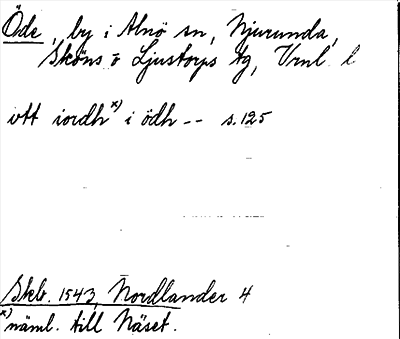 Öde, by i Alnö sn, Njurunda,
Sköns o Ljustorps tg, Vrnl. l
vtt iordh x) i ödh -- s. 125
Skb. 1543, Nordlander 4
x) näml. till Näset.